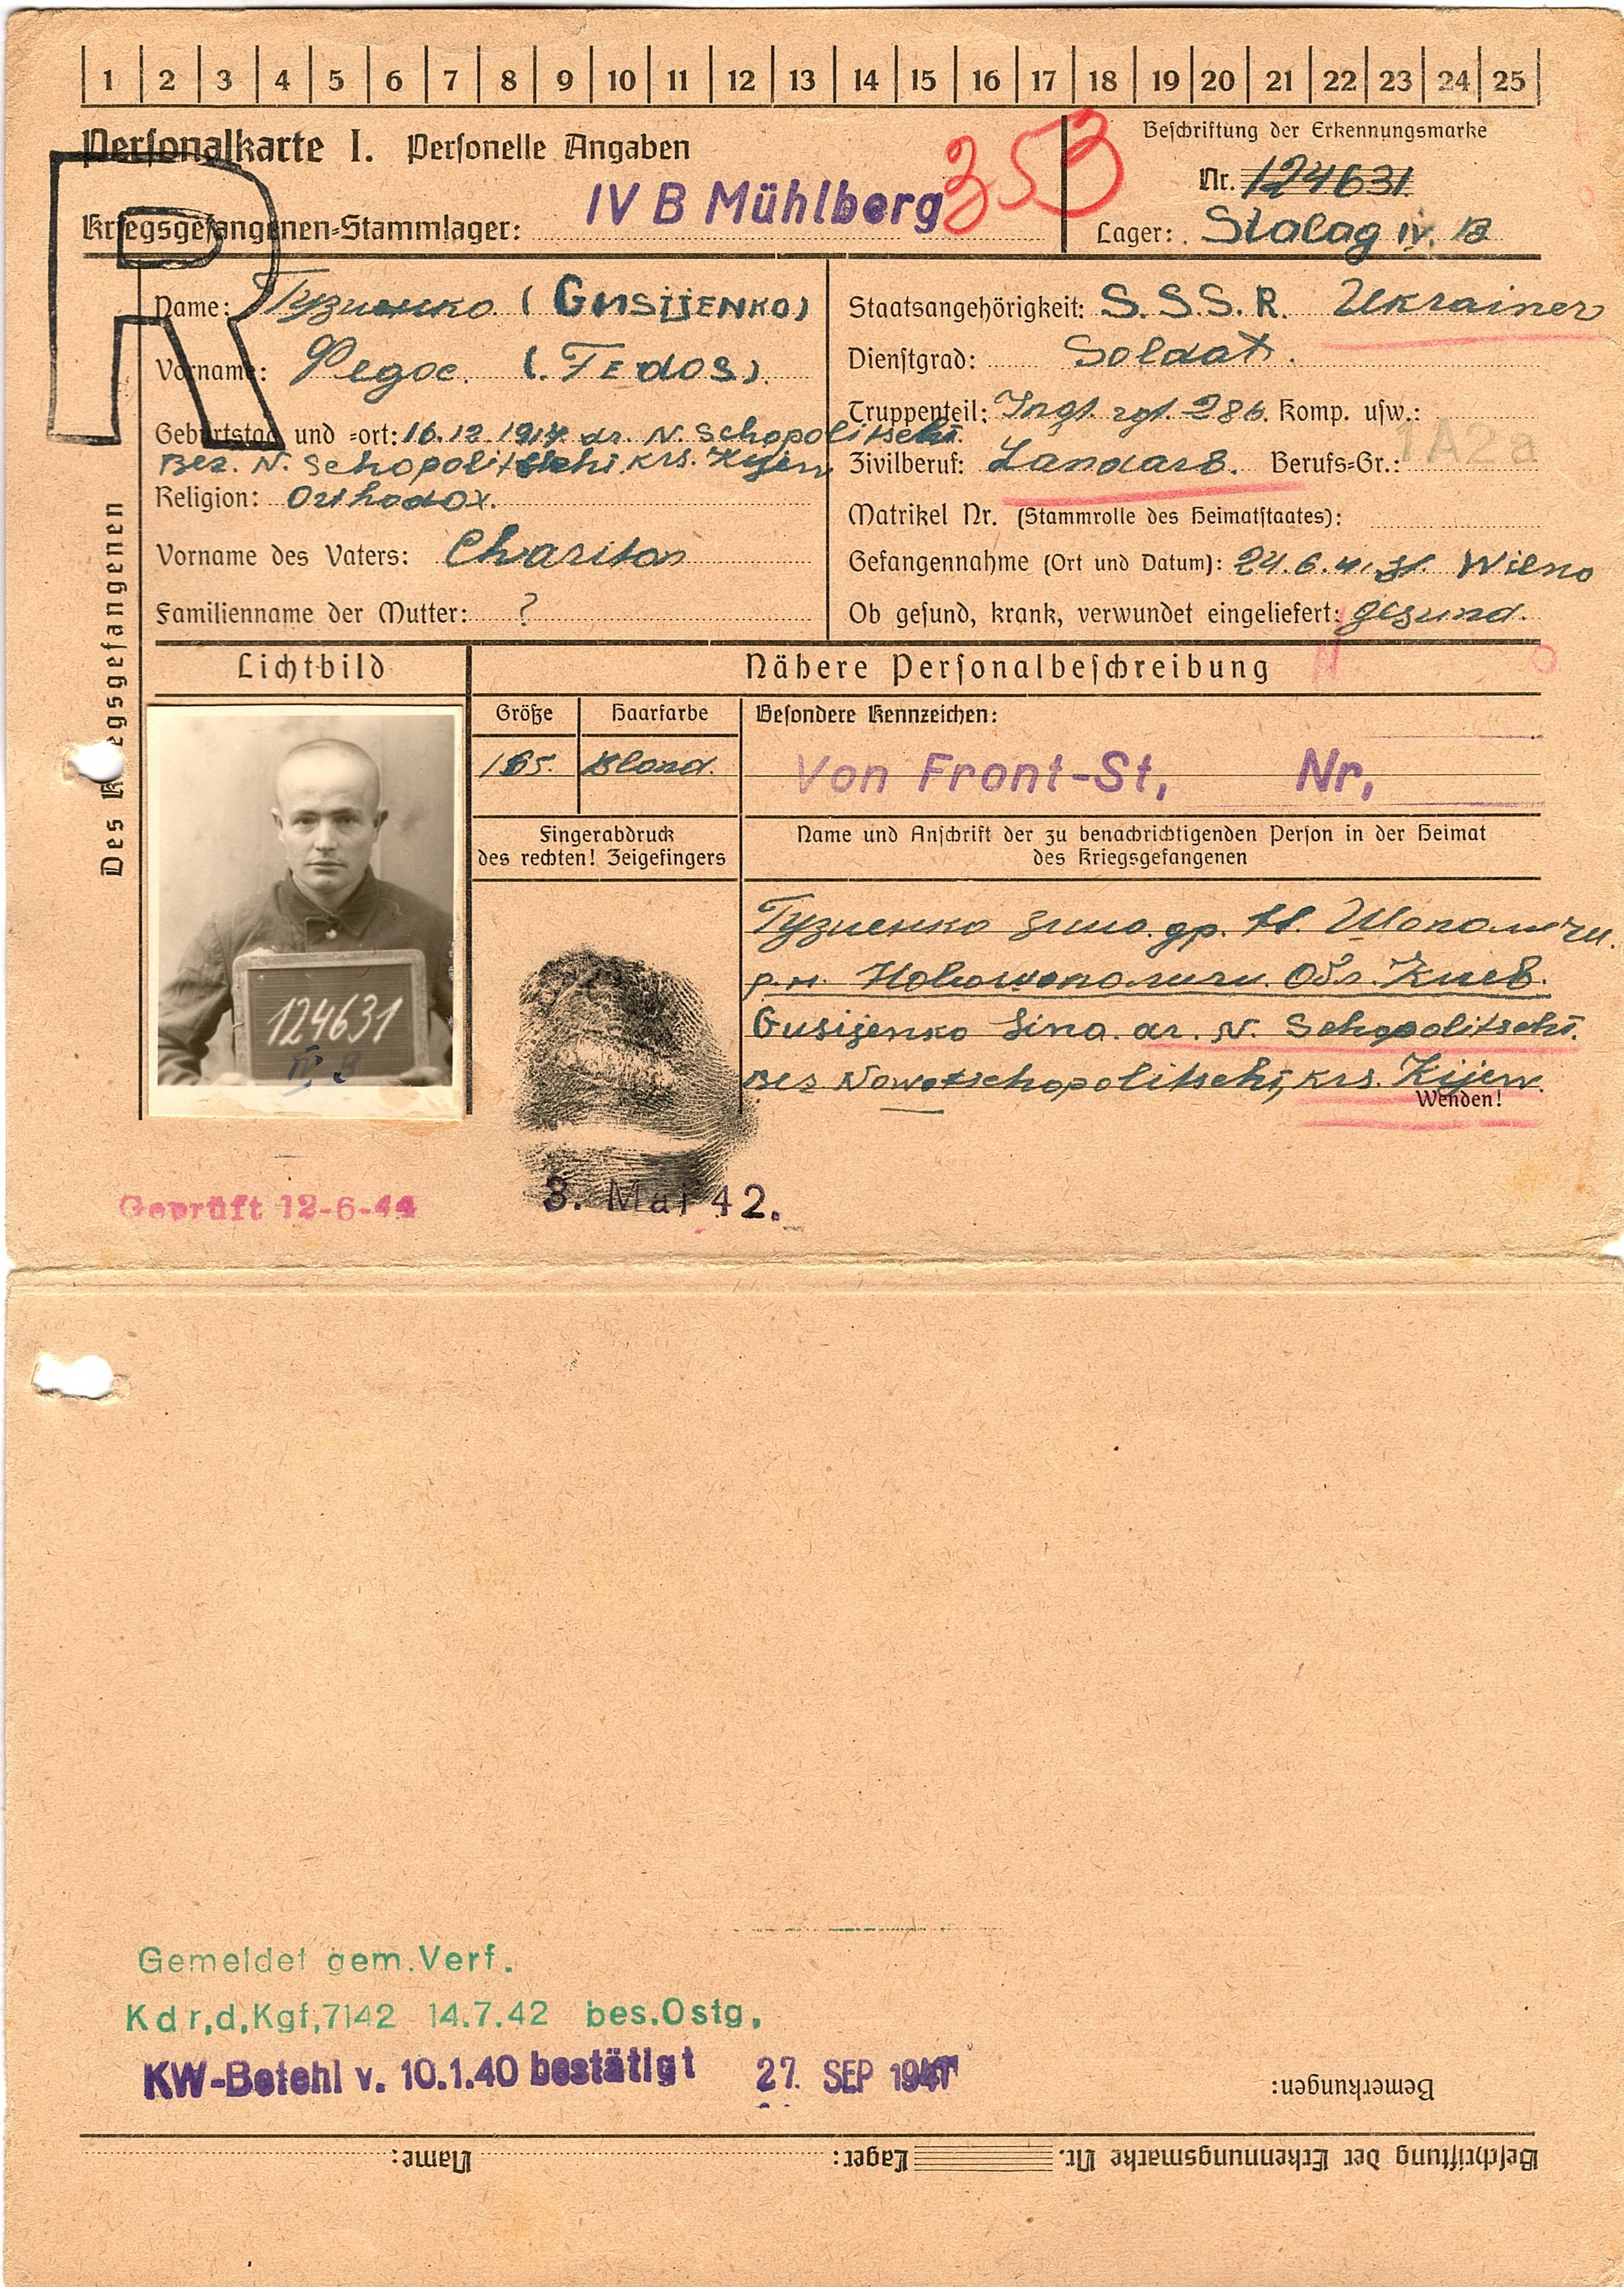 1 2 3 4 5 6 7 8 9 10 11 12 13 14 15 16 17 18 19 20 21 22 23 24 25
Personalkarte I. Personelle Angaben
353
Beschriftung der Erkennungsmarke
Nr. 124631
Kriegsgefangenen-Stammlager: IV B Mühlberg
Lager: Stalag IV. B
R
Des Kriegsgefangenen
Name: Гузиенко (GUSIJENKO)
Vorname: Федос. (FEDOS)
Geburtstag und -ort: 16.12.1914 dr. N. Schopolitschi.
Bez. N. Schopolitschi, krs. Kijew
Religion: Orthodox.
Vorname des Vaters: Chariton
Familienname der Mutter: ?
Staatsangehörigkeit: S.S.S.R. Ukrainer
Dienstgrad: Soldat.
Truppenteil: Inft. rgt. 286. Komp. usw.:
Zivilberuf: Landarb. Berufs-Gr.: 1A2a
Matrikel Nr. (Stammrolle des Heimatstaates):
Gefangennahme (Ort und Datum): 24.6.41. Wilno
Ob gesund, krank, verwundet eingeliefert: gesund.
Lichtbild
Nähere Personalbeschreibung
Größe
Haarfarbe
Besondere Kennzeichen:
165.
Blond.
Von Front-St, Nr,
Fingerabdruck
des rechten! Zeigefingers
Name und Anschrift der zu benachrichtigenden Person in der Heimat
des Kriegsgefangenen
124631
IV B
Гузиенко Зина. др. Н. Шополичи.
р.н. Новошополичи. Обл. Киев.
Gusijenko Sina. dr. N. Schopolitschi.
Bez Nowoschopolitschi, krs. Kijew.
Wenden!
Geprüft 12-6-44
3. Mai 42.
Gemeldet gem. Verf.
Kdr,d,Kgf,7142 14.7.42 bes.Ostg,
KW-Befehl v. 10.1.40 bestätigt 27. SEP 194
Bemerkungen:
Beschriftung der Erkennungsmarke Nr. Lager: Name: